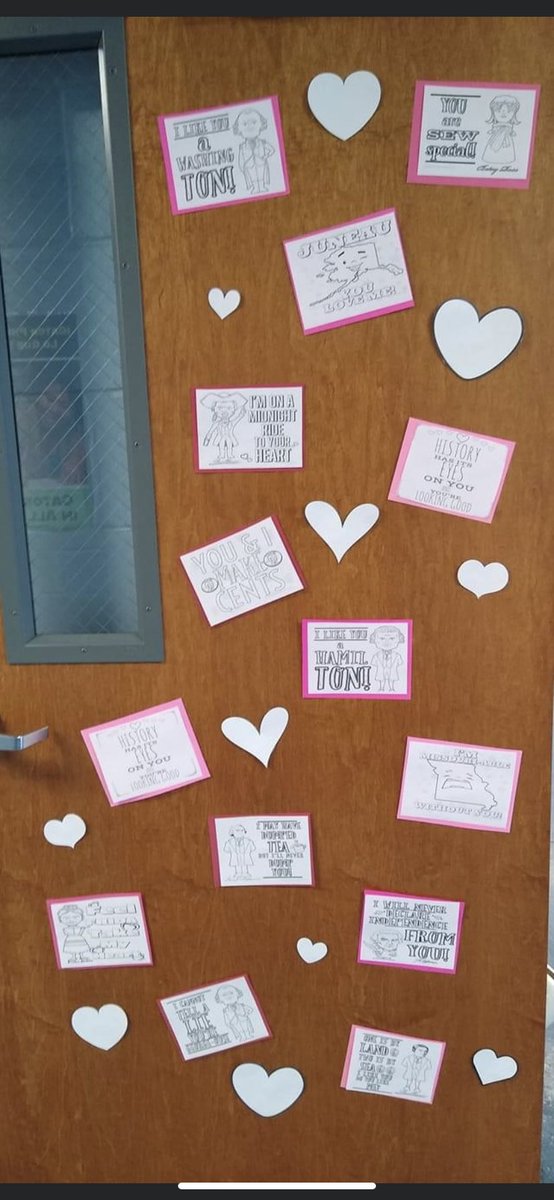 I LIKE YOU
a
WASHING
TON!
YOU
are
SEW
special!
Betsy Ross
JUNEAU
YOU
LOVE ME!
I'M ON A
MIDNIGHT
RIDE
TO YOUR
HEART
HISTORY
HAS ITS
EYES
ON YOU
YOU'RE
LOOKING GOOD
YOU & I
MAKE
CENTS
I LIKE YOU
a
HAMIL
TON!
HISTORY
HAS ITS
EYES
ON YOU
LOOKING GOOD
I'M
MISSOURI-ABLE
WITHOUT YOU!
I MAY HAVE
DUMPED
TEA
BUT I'LL NEVER
DUMP
YOU!
I WILL NEVER
DECLARE
INDEPENDENCE
FROM
YOU!
I CANNOT
TELL A
LIE
ONE IF BY
LAND
TWO IF BY
SEA